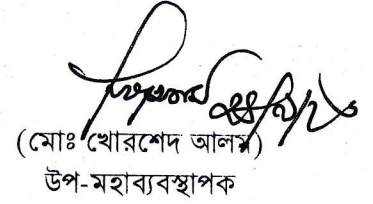 (মোঃ খোরশেদ আলম)
উপ-মহাব্যবস্থাপক